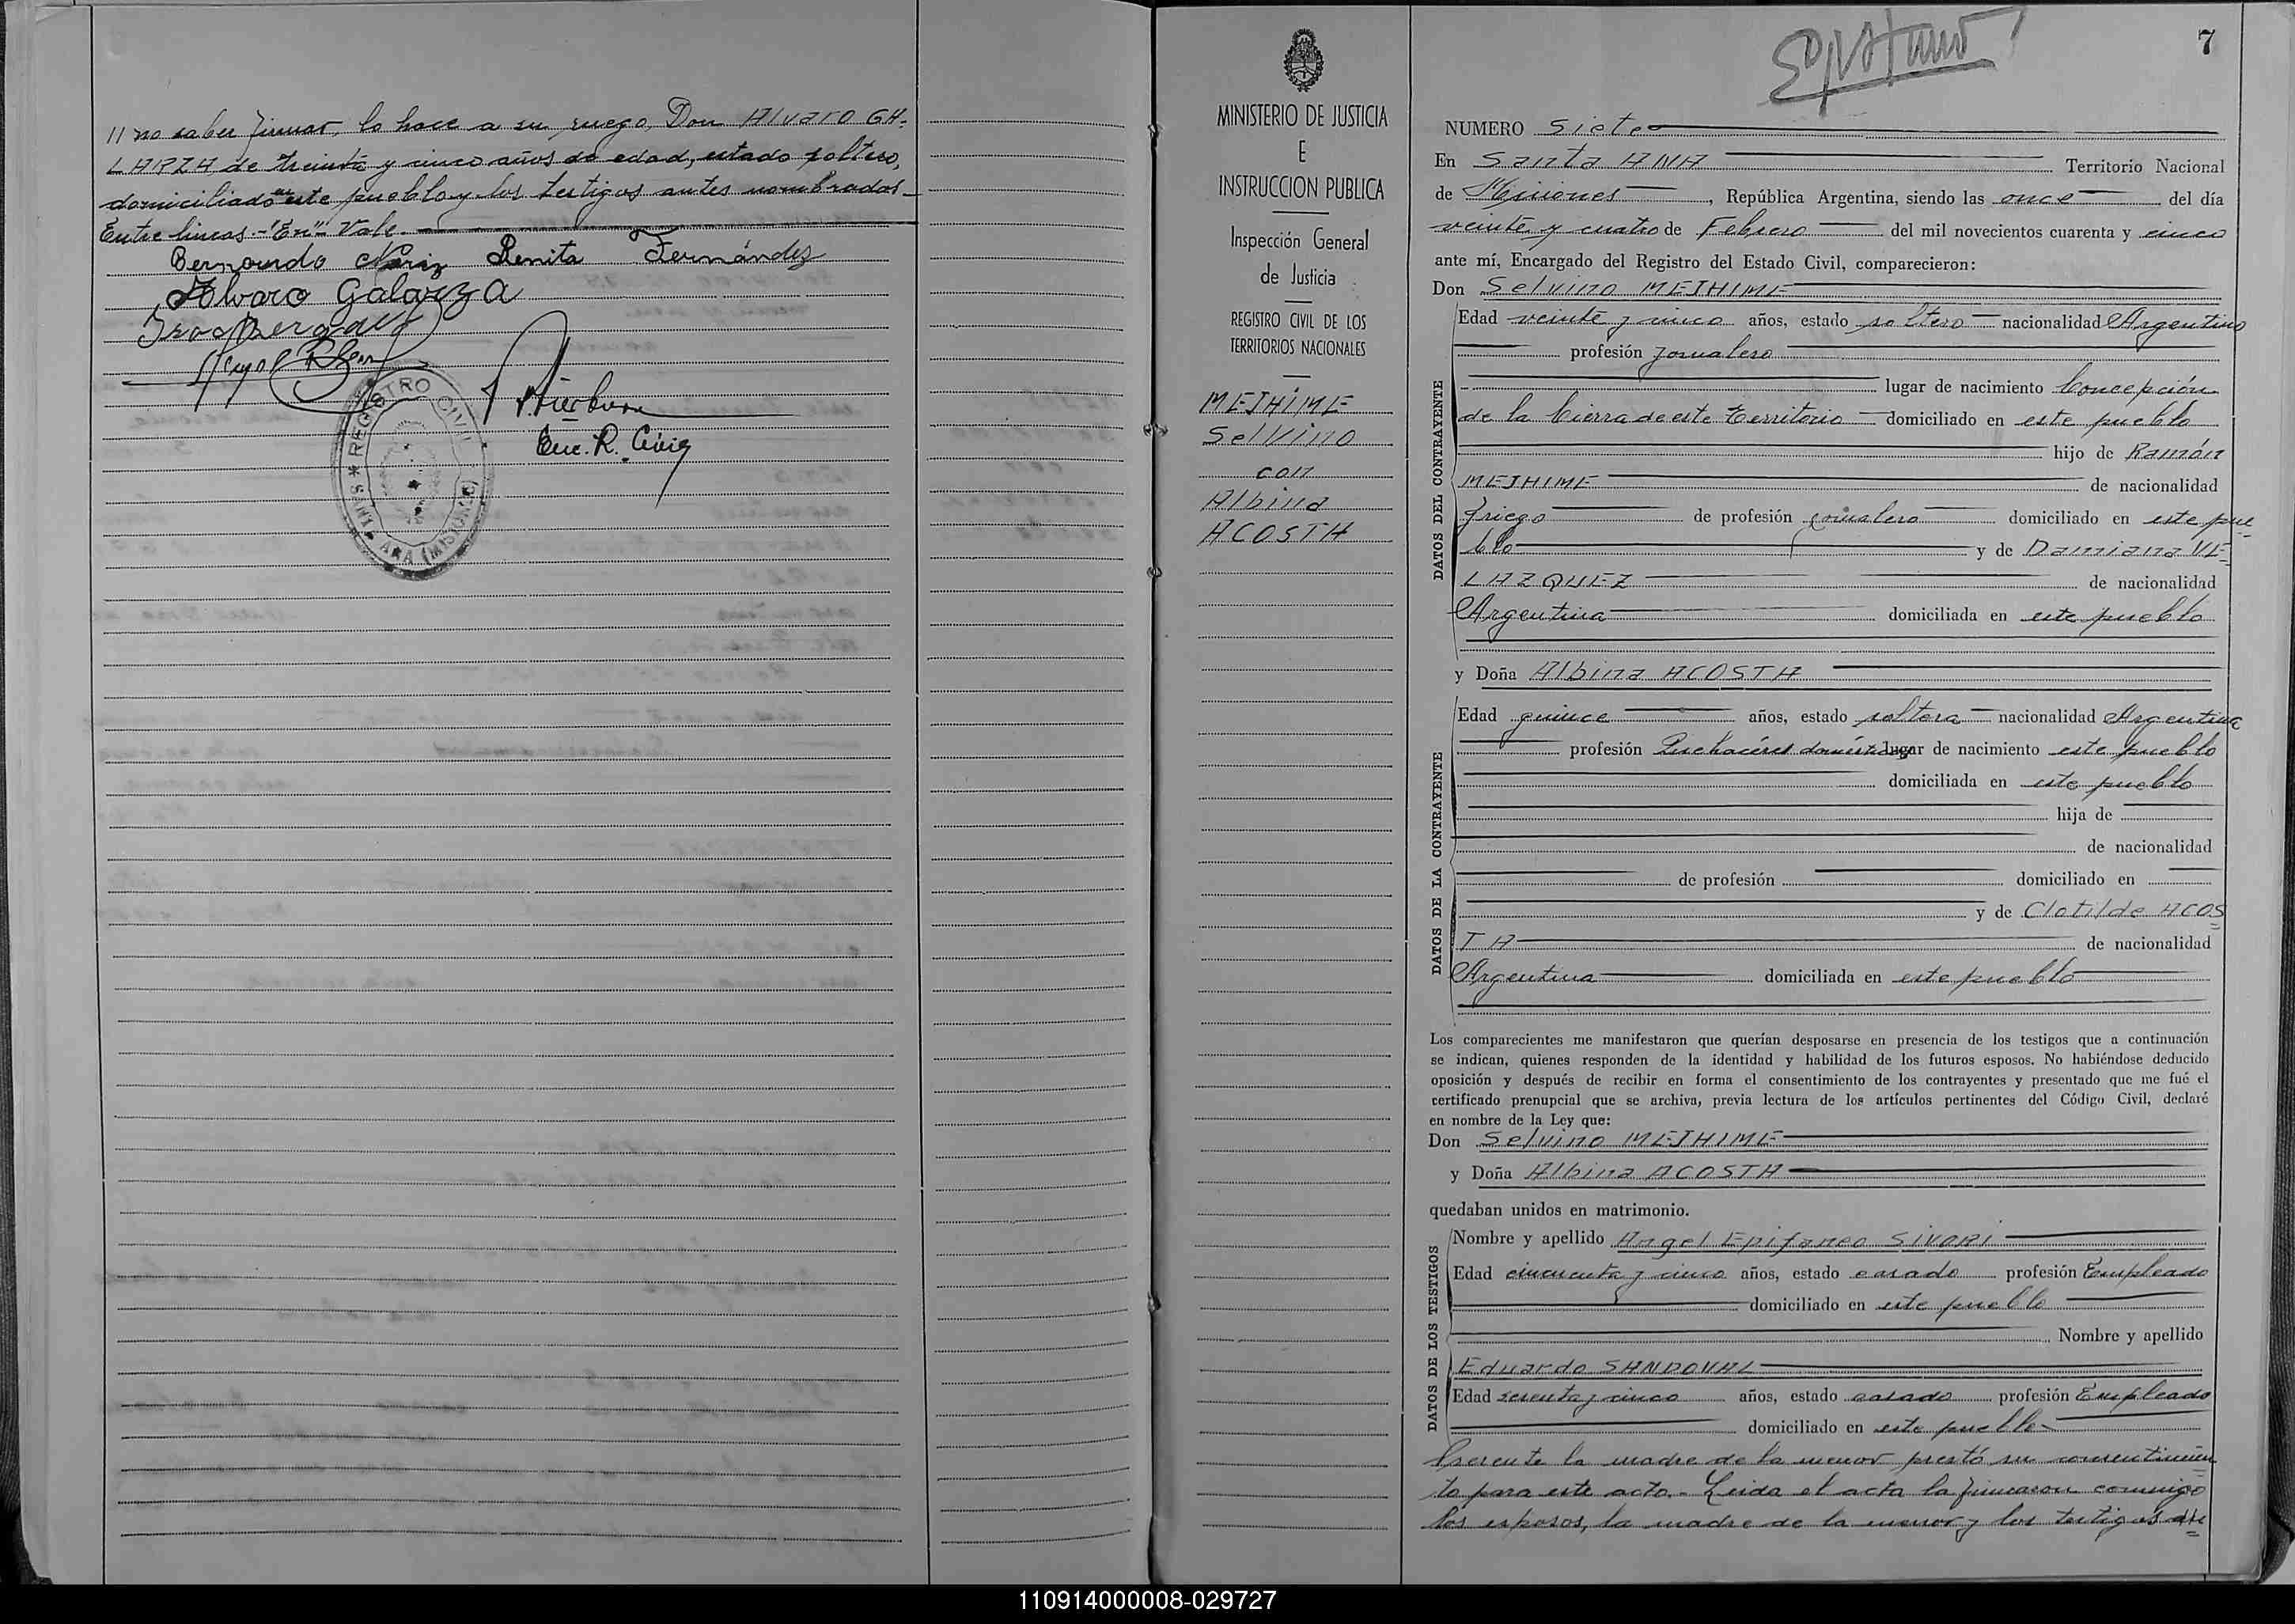 // no saber firmar, lo hace a su ruego, Don Alvaro GA-
LARZA de treinta y cinco años de edad, estado soltero,
domiciliado en este pueblo y los testigos antes nombrados-
Entre lineas.-"En"- Vale.
Bernardo Benita Fernández
Alvaro Galarza
Enc. R. Civil
REGISTRO CIVIL
SANTA ANA (MISIONES)
MINISTERIO DE JUSTICIA
E
INSTRUCCION PUBLICA
Inspección General
de Justicia
REGISTRO CIVIL DE LOS
TERRITORIOS NACIONALES
MEJHIME
Selvino
con
Albina
ACOSTA
7
NUMERO Siete
En Santa ANA Territorio Nacional
de Misiones, República Argentina, siendo las once del día
veinte y cuatro de Febrero del mil novecientos cuarenta y cinco
ante mí, Encargado del Registro del Estado Civil, comparecieron:
Don Selvino MEJHIME
DATOS DEL CONTRAYENTE
Edad veinte y cinco años, estado soltero nacionalidad Argentino
profesión jornalero
lugar de nacimiento Concepción
de la Cierra de este Territorio domiciliado en este pueblo
hijo de Ramón
MEJHIME de nacionalidad
Griego de profesión jornalero domiciliado en este pue=
blo y de Damiana VE=
LAZQUEZ de nacionalidad
Argentina domiciliada en este pueblo
y Doña Albina ACOSTA
DATOS DE LA CONTRAYENTE
Edad quince años, estado soltera nacionalidad Argentina
profesión Quehacéres domésticos lugar de nacimiento este pueblo
domiciliada en este pueblo
hija de
de nacionalidad
de profesión domiciliado en
y de Clotilde ACOS=
TA de nacionalidad
Argentina domiciliada en este pueblo
Los comparecientes me manifestaron que querían desposarse en presencia de los testigos que a continuación
se indican, quienes responden de la identidad y habilidad de los futuros esposos. No habiéndose deducido
oposición y después de recibir en forma el consentimiento de los contrayentes y presentado que me fué el
certificado prenupcial que se archiva, previa lectura de los artículos pertinentes del Código Civil, declaré
en nombre de la Ley que:
Don Selvino MEJHIME
y Doña Albina ACOSTA
quedaban unidos en matrimonio.
DATOS DE LOS TESTIGOS
Nombre y apellido Angel Epifaneo SIVORI
Edad cincuenta y cinco años, estado casado profesión Empleado
domiciliado en este pueblo
Nombre y apellido
Eduardo SANDOVAL
Edad sesenta y cinco años, estado casado profesión Empleado
domiciliado en este pueblo
Presente la madre de la menor prestó su consentimien=
to para este acto.- Leida el acta la firmaron conmigo
los esposos, la madre de la menor y los testigos
110914000008-029727